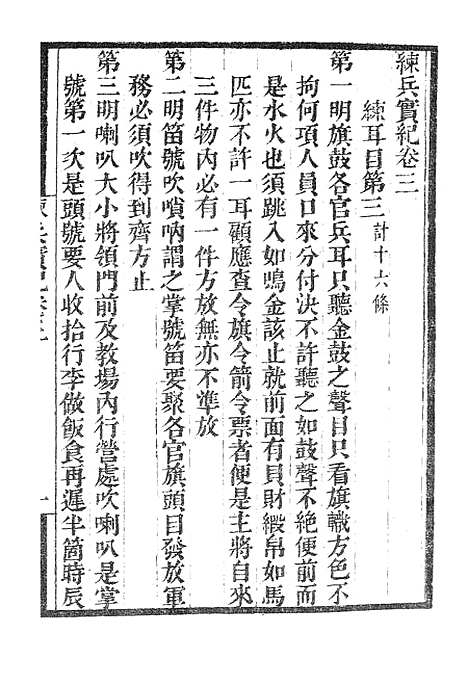 練兵實紀卷三
練耳目第三計十六條
第一明旗鼓各官兵耳只聽金鼓之聲目只看旗幟方色不
拘何項人員口來分付決不許聽之如鼓聲不絕便前而
是水火也須跳入如鳴金該止就前面有貝財緞帛如馬
匹亦不許一耳顧應查令旗令箭令票者便是主將自來
三件物內必有一件方放無亦不準放
第二明笛號吹嗩吶謂之掌號笛要聚各官旗頭目發放軍
務必須吹得到齊方止
第三明喇叭大小將領門前及教場內行營處吹喇叭是掌
號第一次是頭號要人收拾行李做飯食再遲半箇時辰
練兵實紀卷三
一